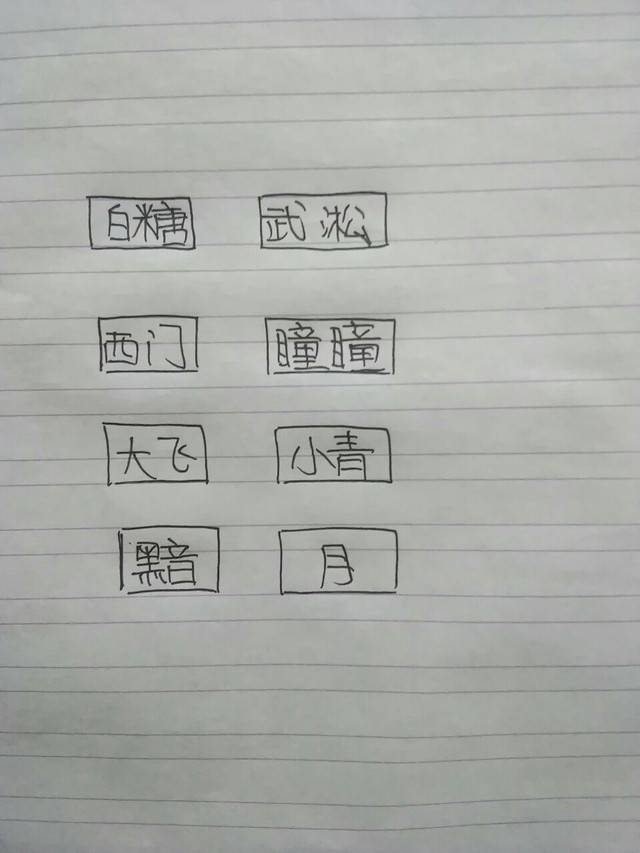 白糖 武淞
西门 瞳瞳
大飞 小青
黯 月